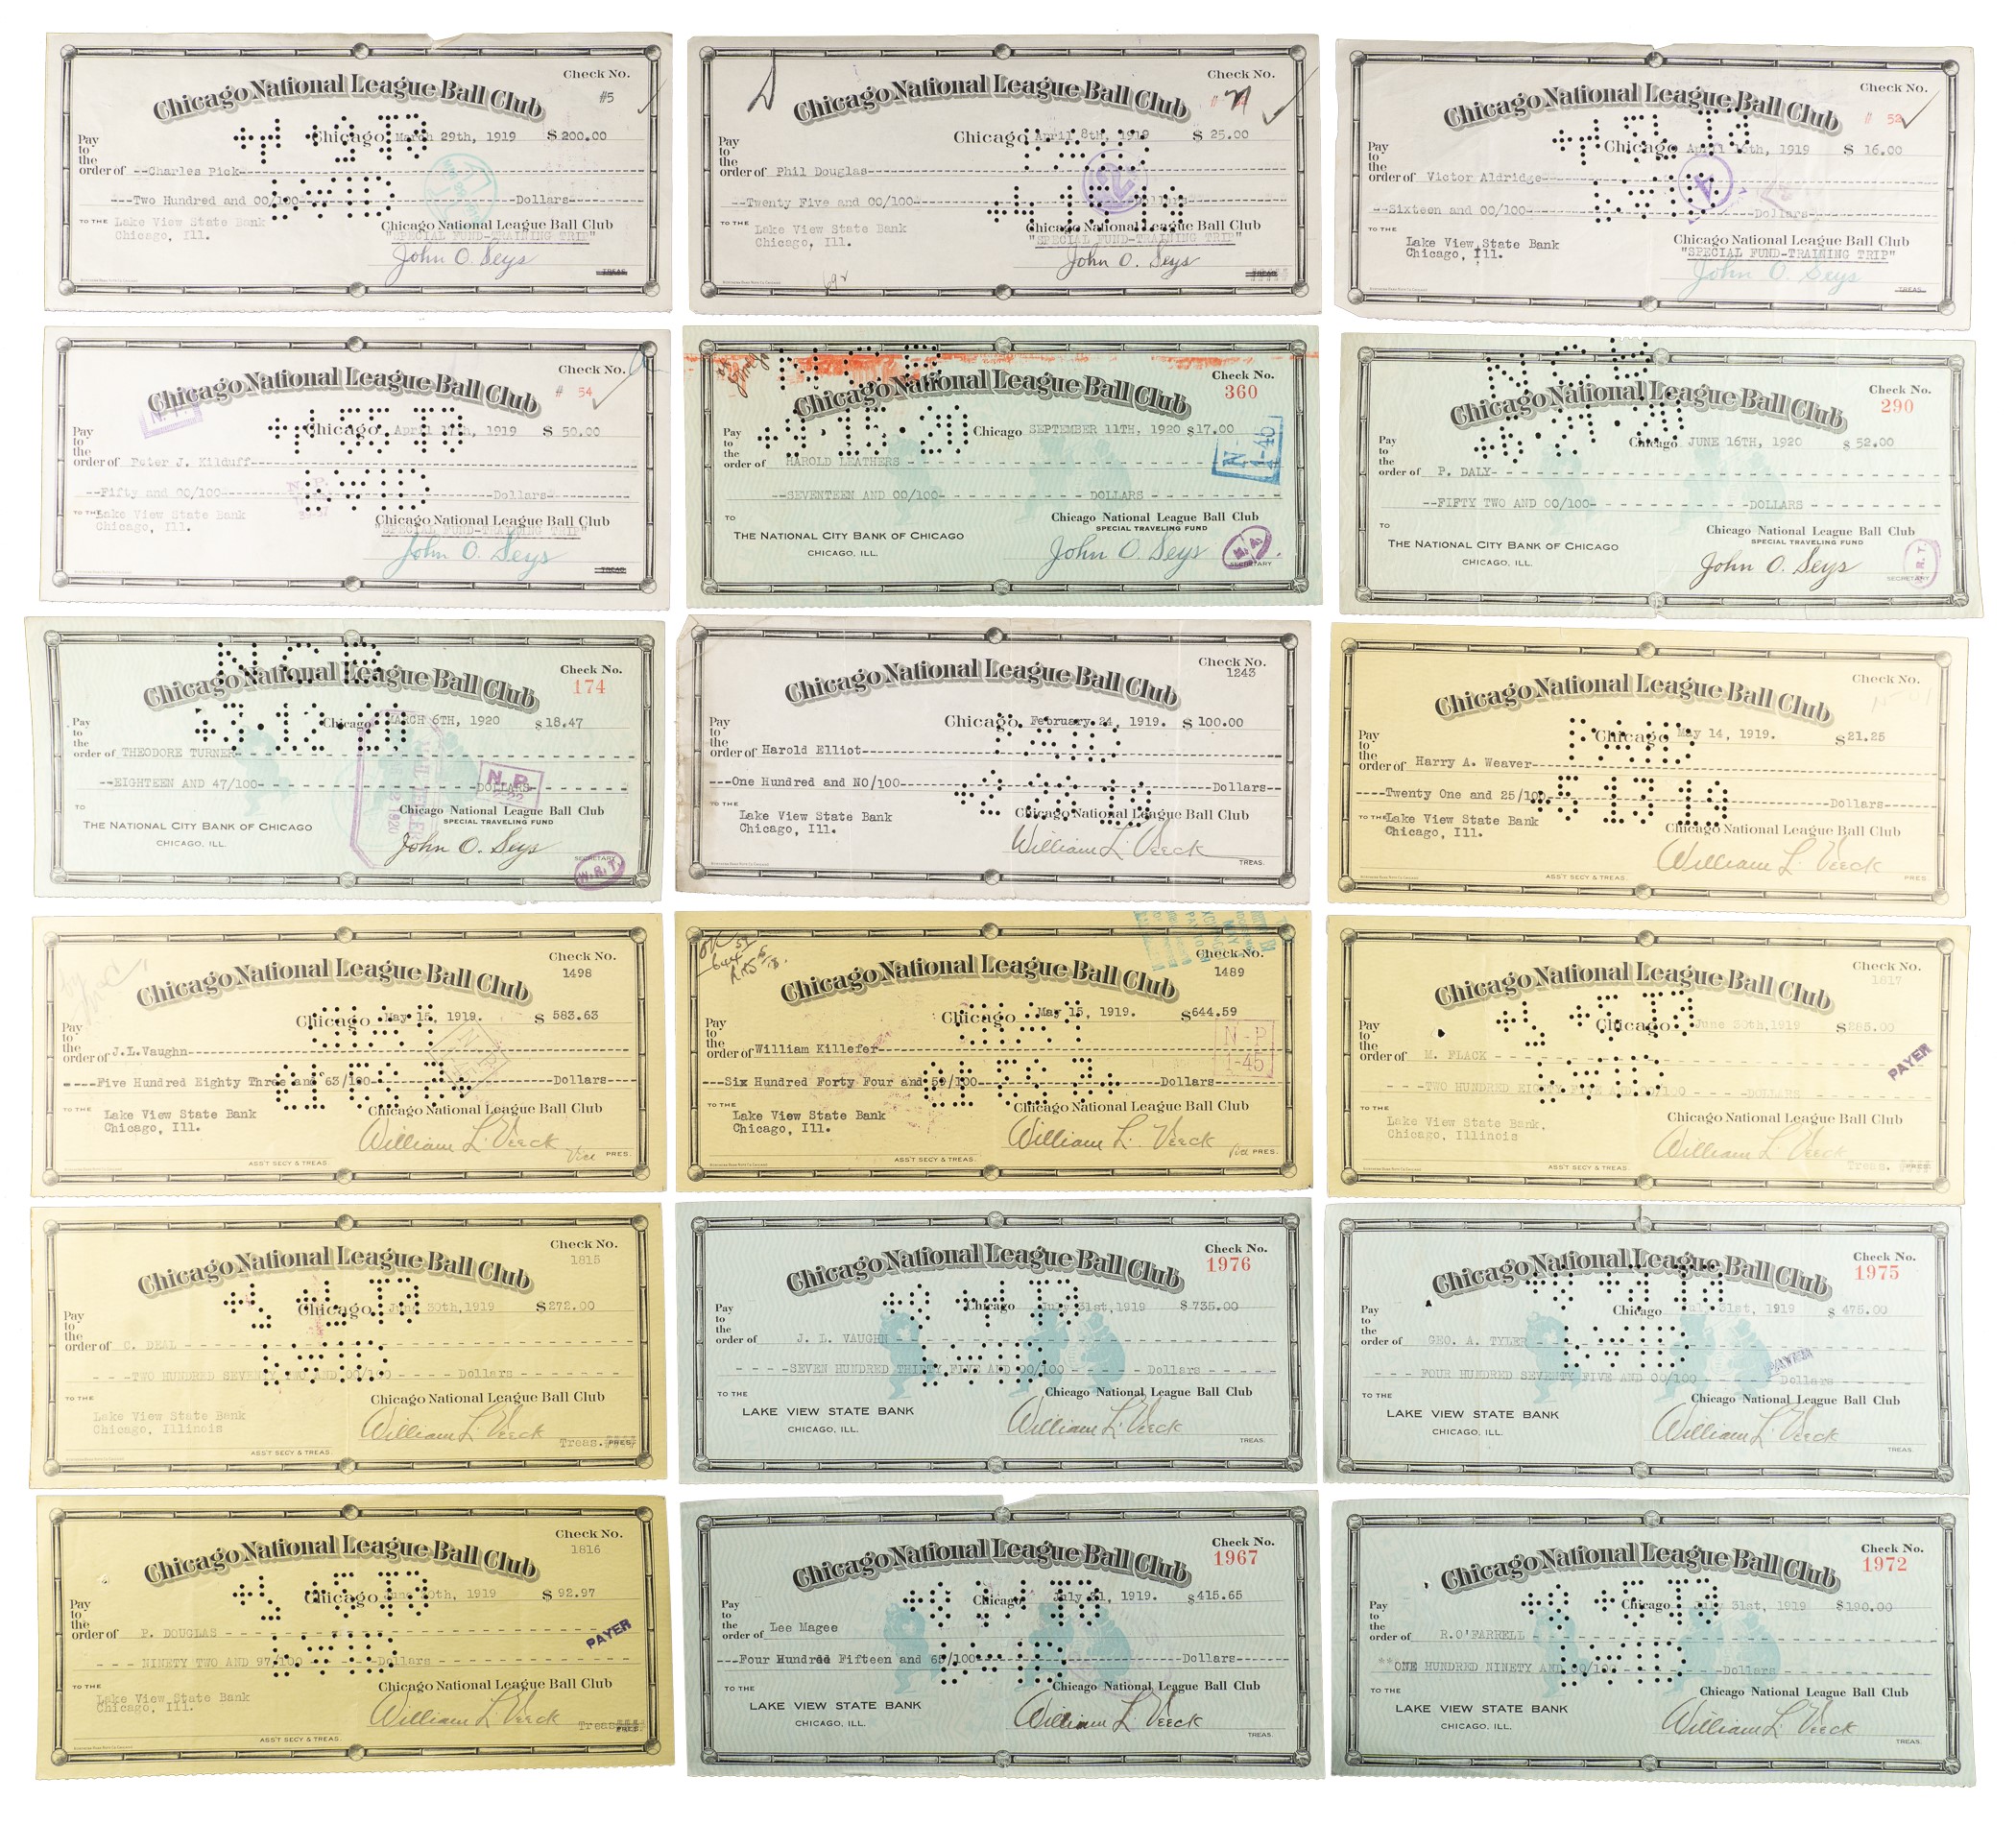 Chicago National League Ball Club
Check No.
#5
Chicago March 29th, 1919 $ 200.00
Pay to the order of --Charles Pick
---Two Hundred and 00/100 Dollars
TO THE Lake View State Bank
Chicago, Ill.
Chicago National League Ball Club
"SPECIAL FUND-TRAINING TRIP"
John O. Seys
TREAS.
Chicago National League Ball Club
Check No.
Chicago April 8th, 1919 $ 25.00
Pay to the order of Phil Douglas
--Twenty Five and 00/100 Dollars
TO THE Lake View State Bank
Chicago, Ill.
Chicago National League Ball Club
"SPECIAL FUND-TRAINING TRIP"
John O. Seys
Chicago National League Ball Club
Check No.
# 52
Chicago April 16th, 1919 $ 16.00
Pay to the order of Victor Aldridge
--Sixteen and 00/100 Dollars
TO THE Lake View State Bank
Chicago, Ill.
Chicago National League Ball Club
"SPECIAL FUND-TRAINING TRIP"
John O. Seys
TREAS.
Chicago National League Ball Club
Check No.
# 54
N.P.
Chicago April 17th, 1919 $ 50.00
Pay to the order of Peter J. Kilduff
--Fifty and 00/100 Dollars
N.P.
TO THE Lake View State Bank
Chicago, Ill.
Chicago National League Ball Club
"SPECIAL FUND-TRAINING TRIP"
John O. Seys
Chicago National League Ball Club
Check No.
360
Chicago SEPTEMBER 11TH, 1920 $17.00
Pay to the order of HAROLD LEATHERS
--SEVENTEEN AND 00/100 DOLLARS
TO
THE NATIONAL CITY BANK OF CHICAGO
CHICAGO, ILL.
Chicago National League Ball Club
SPECIAL TRAVELING FUND
John O. Seys
SECRETARY
Chicago National League Ball Club
Check No.
290
Chicago JUNE 16TH, 1920 $ 52.00
Pay to the order of P. DALY
--FIFTY TWO AND 00/100 DOLLARS
TO
THE NATIONAL CITY BANK OF CHICAGO
CHICAGO, ILL.
Chicago National League Ball Club
SPECIAL TRAVELING FUND
John O. Seys
SECRETARY
Chicago National League Ball Club
Check No.
174
Chicago MARCH 6TH, 1920 $18.47
Pay to the order of THEODORE TURNER
--EIGHTEEN AND 47/100 DOLLARS
N.P.
TO
THE NATIONAL CITY BANK OF CHICAGO
CHICAGO, ILL.
Chicago National League Ball Club
SPECIAL TRAVELING FUND
John O. Seys
SECRETARY
W.R.T.
Chicago National League Ball Club
Check No.
1243
Chicago, February 24, 1919. $ 100.00
Pay to the order of Harold Elliot
---One Hundred and NO/100 Dollars
TO THE Lake View State Bank
Chicago, Ill.
Chicago National League Ball Club
William L. Veeck
TREAS.
Chicago National League Ball Club
Check No.
Chicago May 14, 1919. $21.25
Pay to the order of Harry A. Weaver
----Twenty One and 25/100 Dollars
TO THE Lake View State Bank
Chicago, Ill.
Chicago National League Ball Club
William L. Veeck
ASS'T SECY & TREAS. PRES.
Chicago National League Ball Club
Check No.
1498
Chicago May 15, 1919. $ 583.63
Pay to the order of J.L.Vaughn
----Five Hundred Eighty Three and 63/100 Dollars
TO THE Lake View State Bank
Chicago, Ill.
Chicago National League Ball Club
William L. Veeck
Vice PRES.
ASS'T SECY & TREAS.
Chicago National League Ball Club
Check No.
1489
Chicago May 15, 1919. $644.59
Pay to the order of William Killefer
N-P
1-45
---Six Hundred Forty Four and 59/100 Dollars
TO THE Lake View State Bank
Chicago, Ill.
Chicago National League Ball Club
William L. Veeck
PRES.
ASS'T SECY & TREAS.
Chicago National League Ball Club
Check No.
1617
Chicago June 30th,1919 $285.00
Pay to the order of M. FLACK
PAYER
- - -TWO HUNDRED EIGHTY FIVE AND 00/100 DOLLARS
TO THE Lake View State Bank,
Chicago, Illinois
Chicago National League Ball Club
William L. Veeck
Treas. PRES.
ASS'T SECY & TREAS.
Chicago National League Ball Club
Check No.
1815
Chicago June 30th,1919 $272.00
Pay to the order of C. DEAL
- - -TWO HUNDRED SEVENTY TWO AND 00/100 Dollars
TO THE
Lake View State Bank
Chicago, Illinois
Chicago National League Ball Club
William L. Veeck
Treas. PRES.
ASS'T SECY & TREAS.
Chicago National League Ball Club
Check No.
1976
Chicago July 31st,1919 $ 735.00
Pay to the order of J. L. VAUGHN
- - - -SEVEN HUNDRED THIRTY FIVE AND 00/100 Dollars
TO THE
LAKE VIEW STATE BANK
CHICAGO, ILL.
Chicago National League Ball Club
William L. Veeck
TREAS.
Chicago National League Ball Club
Check No.
1975
Chicago July 31st, 1919 $ 475.00
Pay to the order of GEO. A. TYLER
PAYER
- - - FOUR HUNDRED SEVENTY FIVE AND 00/100 Dollars
TO THE
LAKE VIEW STATE BANK
CHICAGO, ILL.
Chicago National League Ball Club
William L. Veeck
TREAS.
Chicago National League Ball Club
Check No.
1816
Chicago June 30th, 1919 $ 92.97
Pay to the order of P. DOUGLAS
PAYER
- - - NINETY TWO AND 97/100 Dollars
TO THE Lake View State Bank
Chicago, Ill.
Chicago National League Ball Club
William L. Veeck
Treas. PRES.
ASS'T SECY & TREAS.
Chicago National League Ball Club
Check No.
1967
Chicago July 31, 1919. $415.65
Pay to the order of Lee Magee
---Four Hundred Fifteen and 65/100 Dollars
TO THE
LAKE VIEW STATE BANK
CHICAGO, ILL.
Chicago National League Ball Club
William L. Veeck
TREAS.
Chicago National League Ball Club
Check No.
1972
Chicago July 31st, 1919 $190.00
Pay to the order of R.O'FARRELL
**ONE HUNDRED NINETY AND 00/100 Dollars
TO THE
LAKE VIEW STATE BANK
CHICAGO, ILL.
Chicago National League Ball Club
William L. Veeck
TREAS.